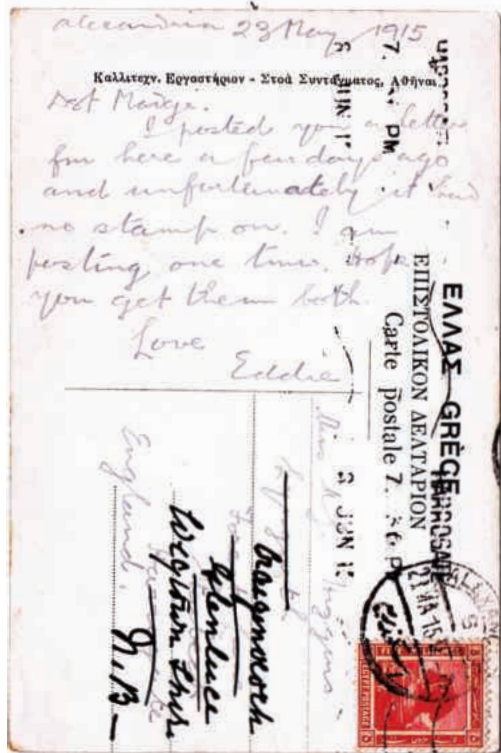 Alexandria 23 May 1915
Καλλιτεχν. Εργοστήριον - Στοά Συντάγματος, Αθήναι
Dst Madge.
I posted you a letter
fm here a few days ago
and unfortunately it had
no stamp on. I am
posting one time. Hope
you get them both.
Love
Eddie
ΕΛΛΑΣ GRÈCE
ΕΠΙΣΤΟΛΙΚΟΝ ΔΕΛΤΑΡΙΟΝ
Carte postale
HARROGATE
7. PM
JUN 1
HARROGATE
7. 36 P
JUN 15
21 MA 15
Miss
Higgins
England.
Craigenveoch
Glenluce
Wigtown Shire
N.B-